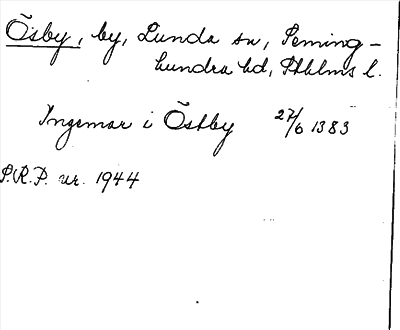 Östby, by, Lunda sn, Seming-
hundra hd, Sthlms l.
Ingemar i Östby 27/6 1383
S.R.P. nr. 1944